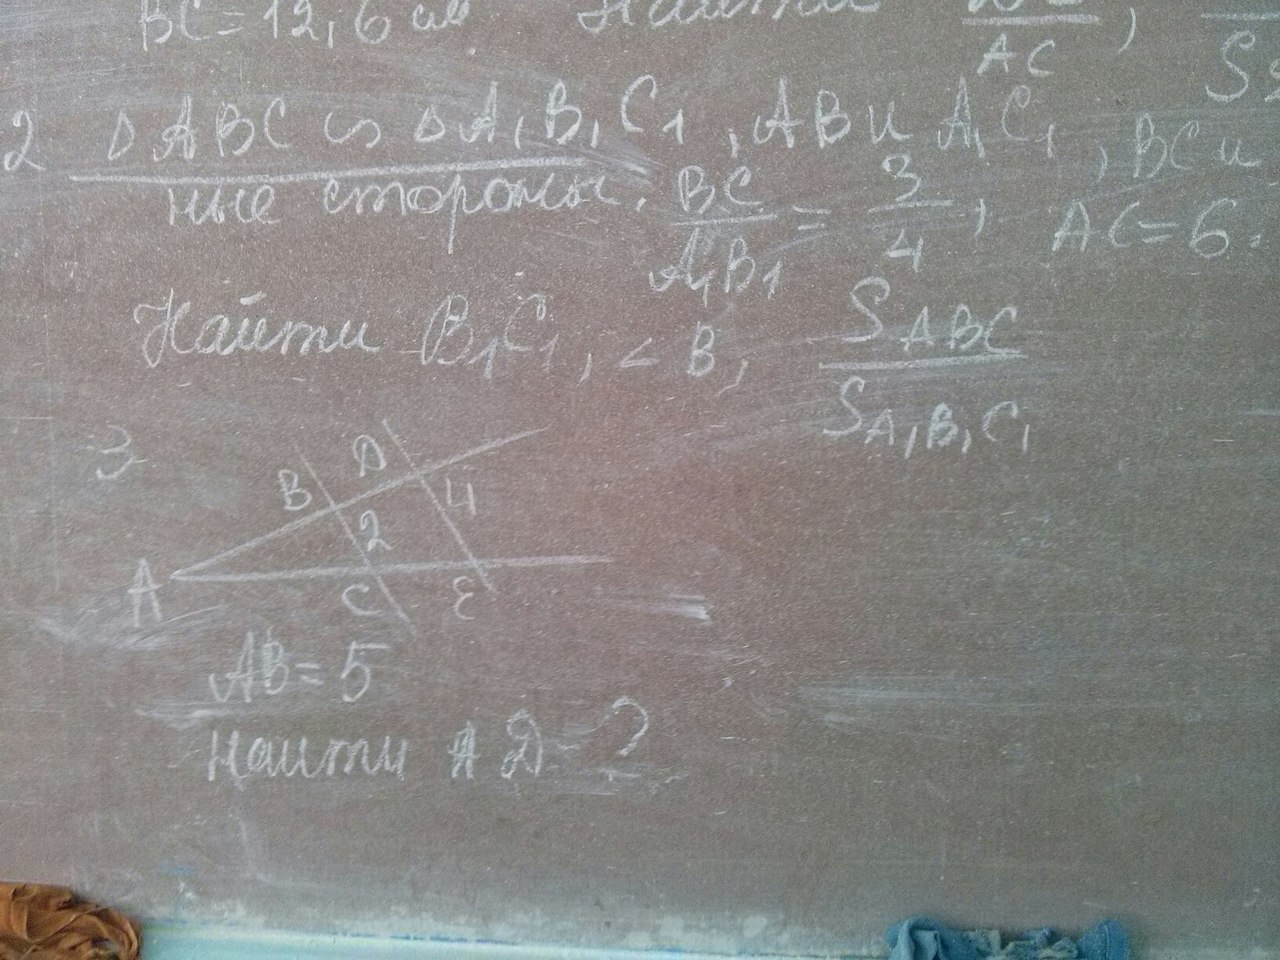 BC = 12,6 см Найти AC,
2 △ABC ∽ △A₁B₁C₁, AB и A₁C₁, BC и
ные стороны. BC/A₁B₁ = 3/4, AC = 6
Найти B₁C₁, < B, S ABC / S A₁B₁C₁
3
B D
2 4
A C E
AB = 5
Найти AD - ?